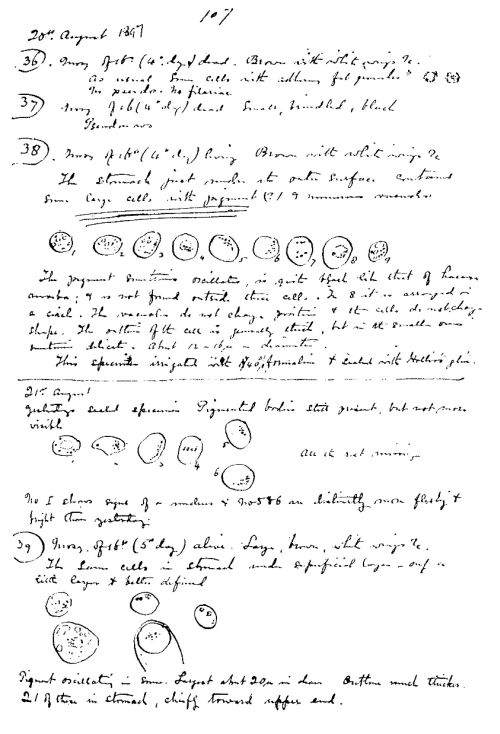 107
20th August 1897
36. Mosq. of 16th (4th day) dead. Brown with white wings &c.
As usual. Some cells with
No pseudo. No filariae
37 Mosq of 16 (4th day) dead Small, brindled, black
38. Mosq of 16th (4th day) living Brown with white wings &c
The stomach just under its outer surface contained
some large cells with pigment (?) & numerous vacuoles
1 2 3 4 5 6 7 8 9
The pigment sometimes oscillates, is quite black like that of
amoeba; & is not found outside these cells. In 8 it is arranged in
a circle. The vacuoles do not change position & the cells do not change
shape. The outline of the cell is generally but in the smaller ones
sometimes delicate. About 12–16µ in diameter.
This specimen irrigated with 40% formalin & sealed with
21st August
Yesterday's sealed specimen Pigmented bodies still present, but not more
visible
5
4
6
All is not
No 1 shows signs of a nucleus & No 5 & 6 are distinctly more &
bright than yesterday.
39 Mosq. of 16th (5th day) alive. Large, brown, white wings &c.
The same cells in stomach under superficial layer – only
larger & better defined
Pigment oscillating in some. Largest about 20µ in diam Outline much thicker.
21 of these in stomach, chiefly toward upper end.